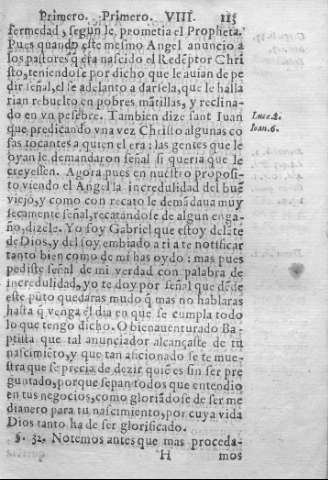 Primero. Primero. VIII. 115
fermedad, segun le prometia el Propheta.
Pues quando este mesmo Angel anuncio a
los pastores q̃ era nascido el Redẽptor Chri
sto, teniendose por dicho que le auian de pe
dir señal, el se adelanto a darsela, que le halla
rian rebuelto en pobres mãtillas, y reclina-
do en vn pesebre. Tambien dize sant Iuan
que predicando vna vez Christo algunas co
sas tocantes a quien el era: las gentes que le
oyan le demandaron señal si queria que le
creyessen. Agora pues en nuestro proposi-
to viendo el Angel la incredulidad del buẽ
viejo, y como con recato le demãdaua muy
secamente señal, recatandose de algun enga-
ño, dizele. Yo soy Gabriel que estoy delãte
de Dios, y del soy embiado a ti a te notificar
tanto bien como de mi has oydo: mas pues
pediste señal de mi verdad con palabra de
incredulidad, yo te doy por señal que desde
este pũto quedaras mudo q̃ mas no hablaras
hasta q̃ venga el dia en que se cumpla todo
lo que tengo dicho. O bienauenturado Ba-
ptista que tal anunciador alcançaste de tu
nascimiẽto, y que tan aficionado se te mue-
stra que se precia de dezir quiẽ es sin ser pre
guntado, porque sepan todos que entendio
en tus negocios, como gloriãdose de ser me
dianero para tu nascimiento, por cuya vida
Dios tanto ha de ser glorificado.
§. 32. Notemos antes que mas proceda-
H mos
Lucæ.2.
Ioan.6.